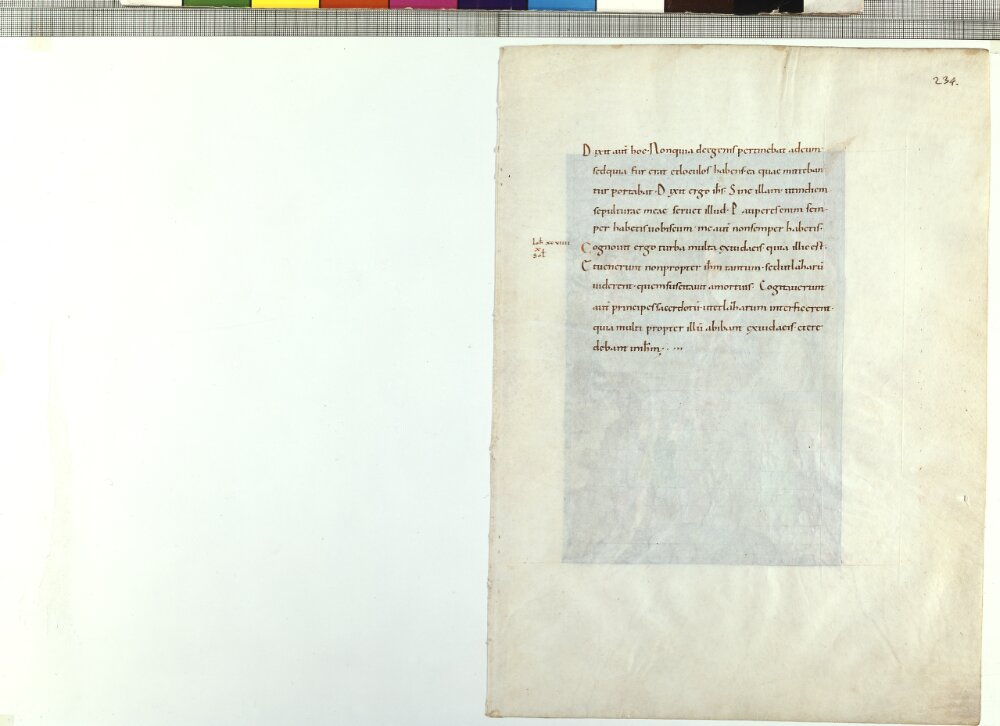 234.
Dixit aut̄ hoc. Non quia deegenis pertinebat ad eum.
sed quia fur erat et loculos habens ea quae mitteban
tur portabat. Dixit ergo ihs. Sine illam. ut in diem
sepulturae meae servet illud. Pauperes enim sem
per habetis vobiscum. me aut̄ non semper habetis.
Cognovit ergo turba multa ex iudaeis quia illic est.
Et venerunt non propter ihm tantum. sed ut lazarū
viderent. quem suscitavit a mortuis. Cogitaverunt
aut̄ principes sacerdotū. ut et lazarum interficerent.
quia multi propter illū abibant ex iudaeis et cre
debant in ihm;